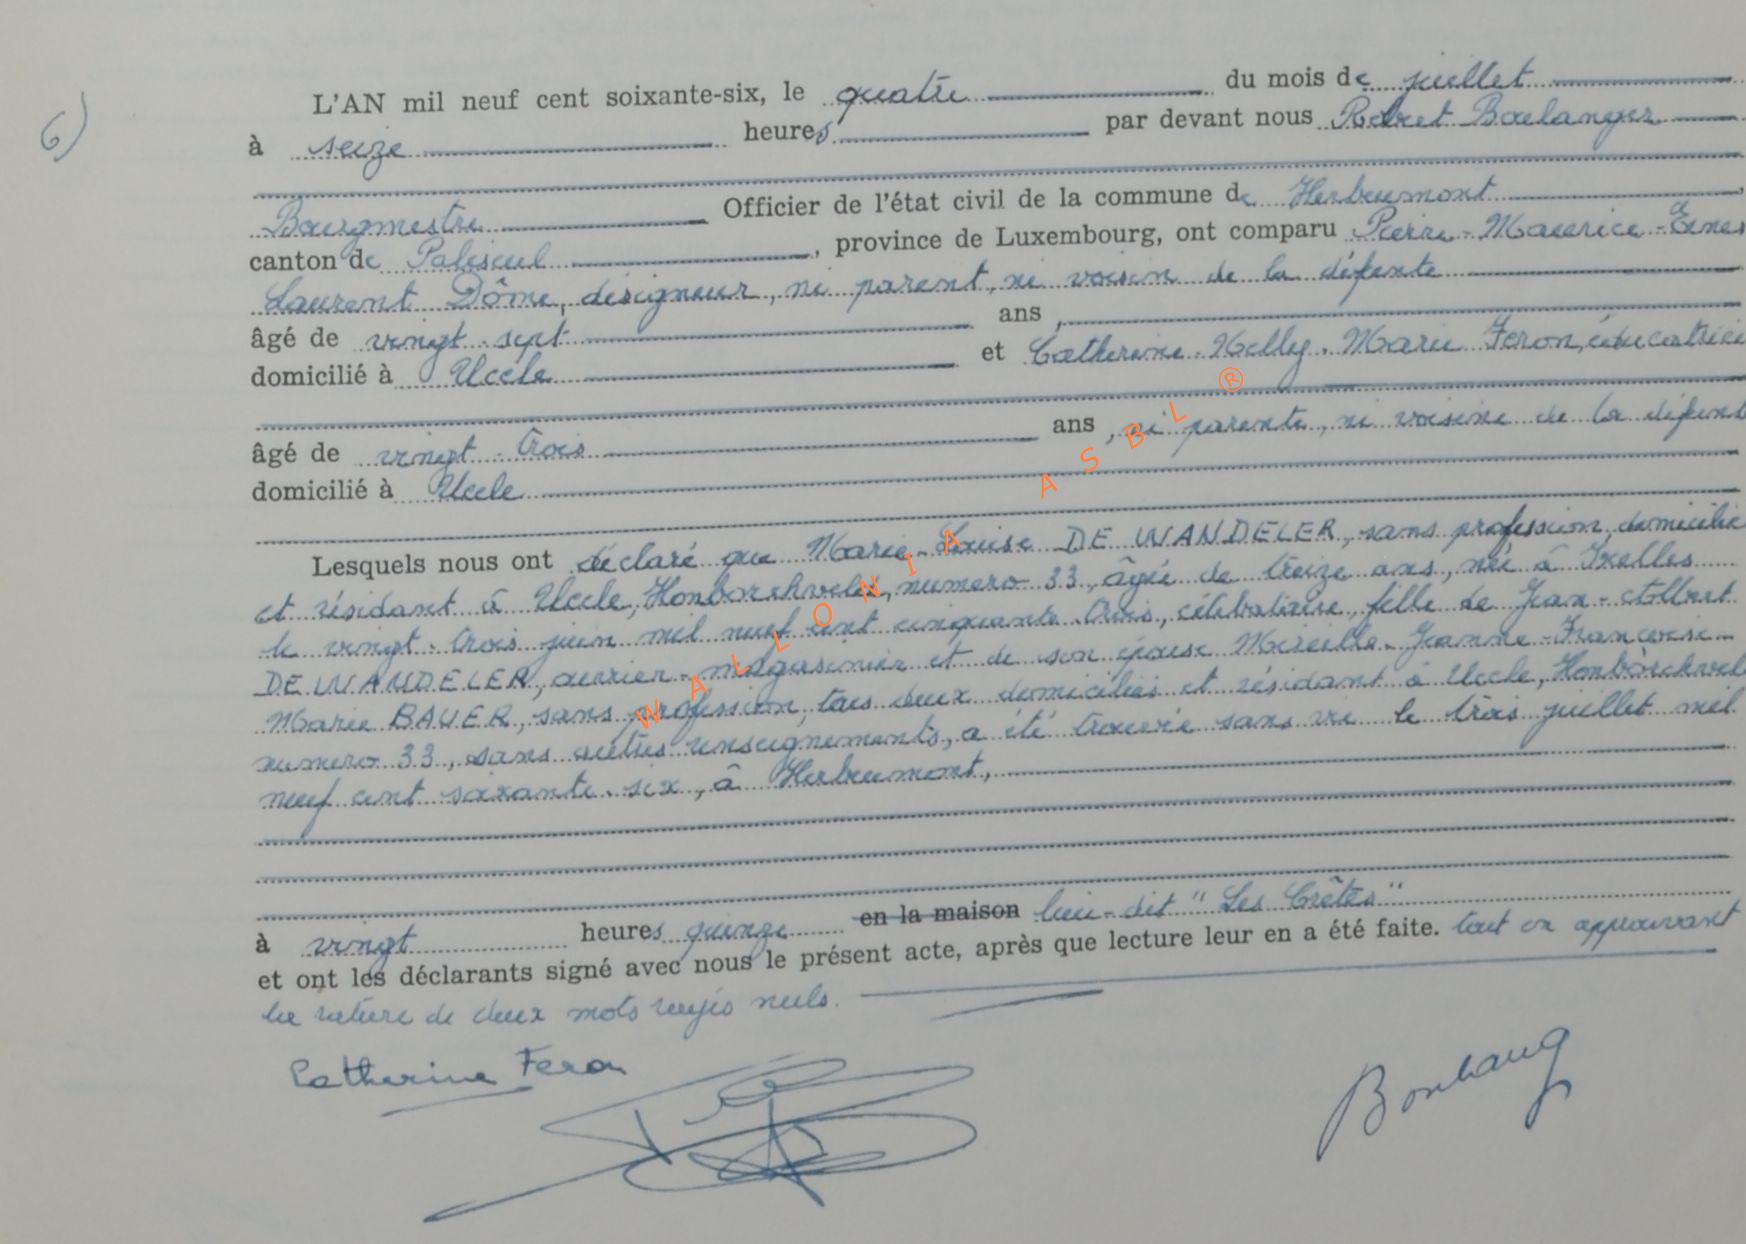 6)
L'AN mil neuf cent soixante-six, le quatre du mois de juillet
à seize heures par devant nous Robert Boulanger
Bourgmestre Officier de l'état civil de la commune de Herbeumont
canton de Paliseul, province de Luxembourg, ont comparu Pierre-Maurice-
Laurent Dôme, désigneur, ni parent, ni voisin de la défunte
âgé de vingt-sept ans,
domicilié à Uccle et Catherine-Nelly-Marie Feron, éducatrice
âgé de vingt-trois ans, ni parente, ni voisine de la défunt
domicilié à Uccle
Lesquels nous ont déclaré que Marie-Louise DE WANDELER, sans profession, domicilié
et résidant à Uccle, numero 33, âgée de treize ans, née à Ixelles
le vingt-trois juin mil neuf cent cinquante-trois, célibataire, fille de Jean-Albert
DE WANDELER, ouvrier-magasinier et de son épouse Mireille-Jeanne-Francoise-
Marie BAUER, sans profession, tous deux domiciliés et résidant à Uccle,
numero 33, sans autres renseignements, a été trouvée sans vie le trois juillet mil
neuf cent soixante-six, à Herbeumont,
à vingt heures quinze en la maison lieu-dit "Les Crêtes"
et ont les déclarants signé avec nous le présent acte, après que lecture leur en a été faite. tout en approuvant
la rature de deux mots rayés nuls.
Catherine Feron
Boulang
WALLONIA ASBL ®